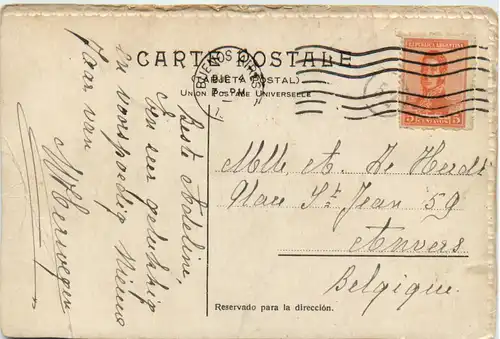 CARTE POSTALE
(TARJETA POSTAL)
UNION POSTALE UNIVERSELLE
BUENOS AIRES
DIC 4
7 PM
REPUBLICA ARGENTINA
5 CENTAVOS 5
Beste Adeline,
Een zeer gelukkig
en voorspoedig Nieuw
Jaar van
Mlle A. De Herdt
Place St Jean 59
Anvers
Belgique.
Reservado para la dirección.